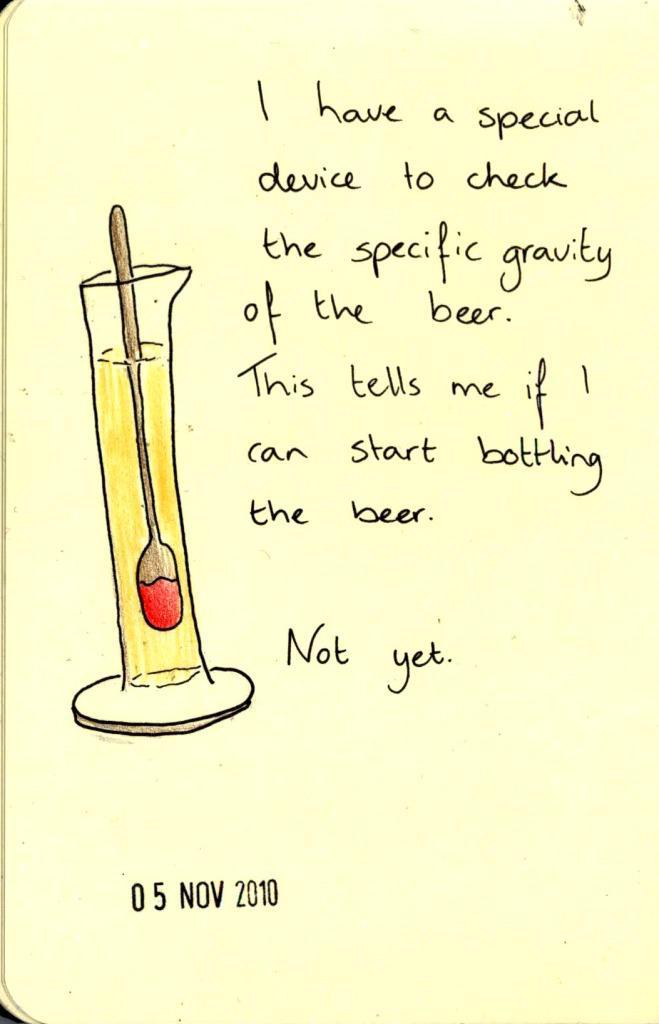 I have a special
device to check
the specific gravity
of the beer.
This tells me if I
can start bottling
the beer.
Not yet.
05 NOV 2010